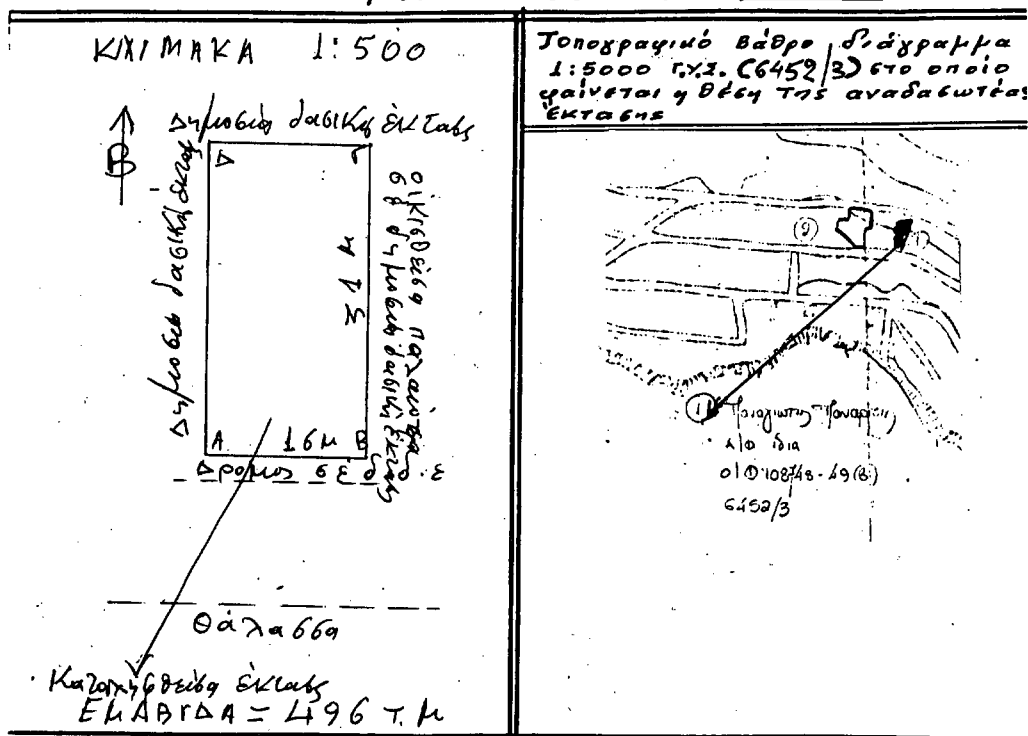 ΚΛΙΜΑΚΑ 1:500
Β
Δημοσια δασικη έκτασις
Δημοσια δασικη έκτασις
Δ
Γ
31 Μ
οικισθείσα παλαιότερα
δημοσια δασικη έκτασις
Α 16 Μ Β
Δρομος σε
Θάλασσα
Καταληφθείσα έκτασις
ΕΜΑΒΓΔΑ = 496 Τ.Μ
Τοπογραφικό Βάθρο διάγραμμα
1:5000 Γ.Υ.Σ. (6452/3) στο οποίο
φαίνεται η θέση της αναδασωτέας
Έκτασης
9
1
Παναγιώτης
Α/Φ ίδια
Ο/Φ 108/48-49(Β)
6452/3